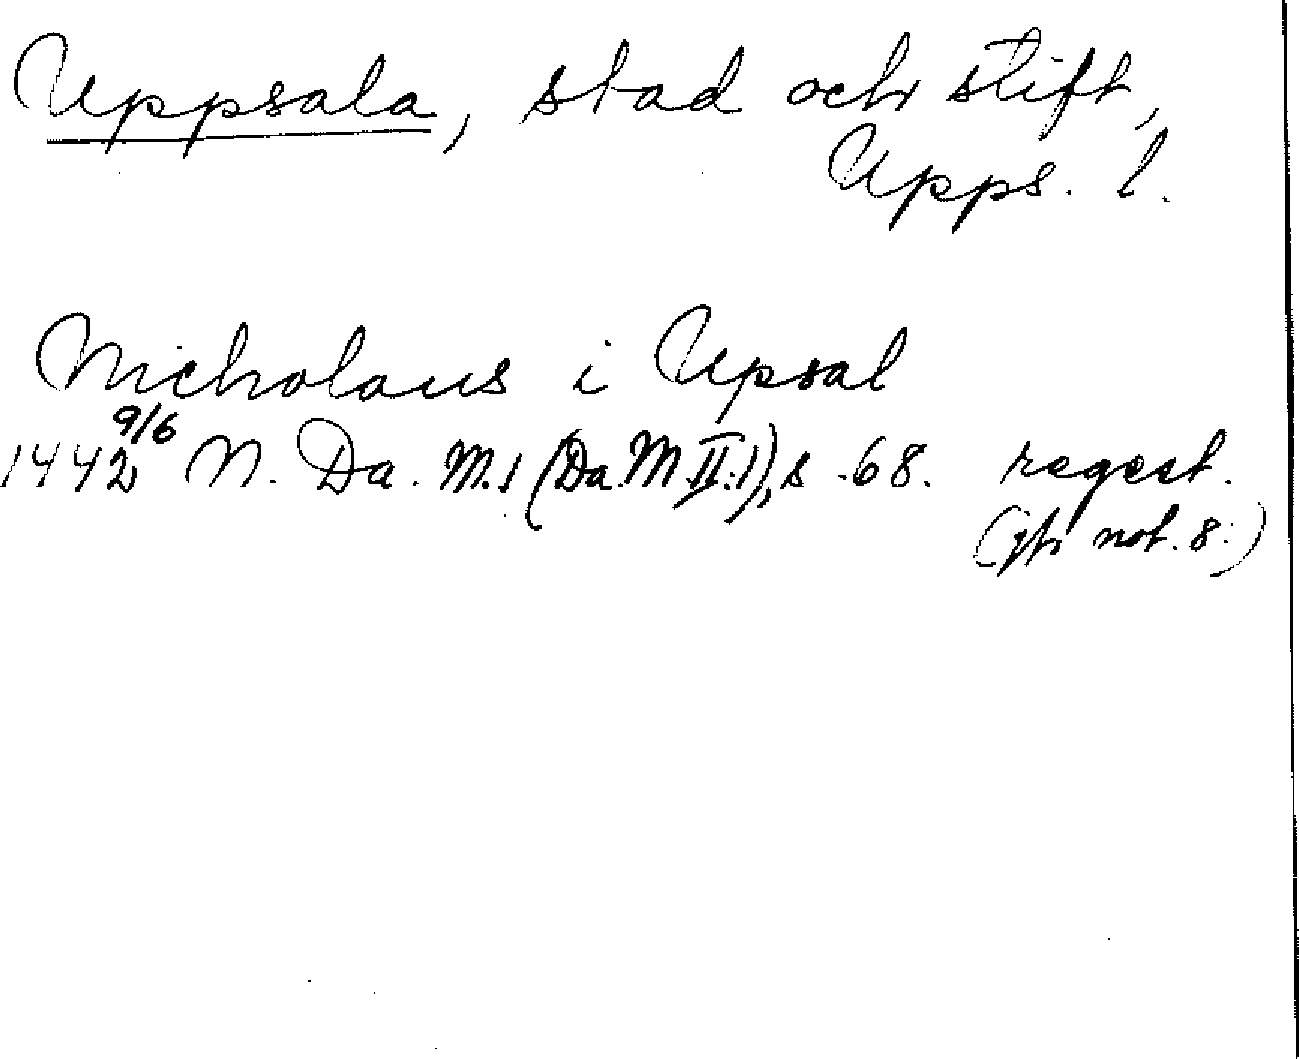 Uppsala, stad och stift,
Upps. l.
Nicholaus i Upsal
9/6
1442 N. Da. M. 1 (Da. M. II:1), s. 68. regest.
(jfr not. 8.)